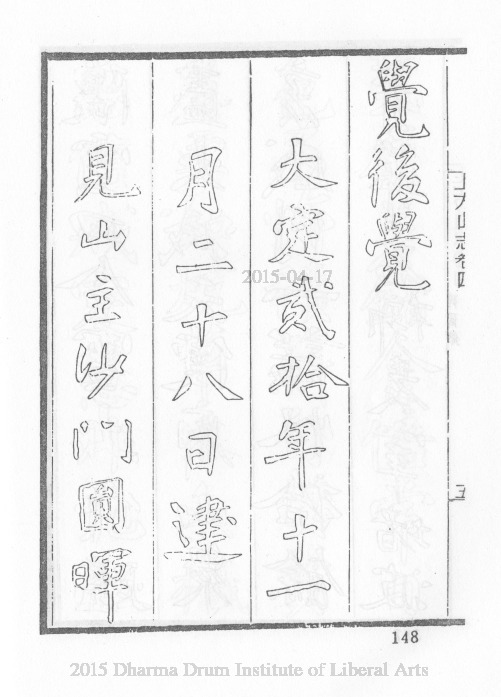 覺後覺
大定貳拾年十一
月二十八日建
見山主沙門圓暉
五
148
2015-04-17
2015 Dharma Drum Institute of Liberal Arts